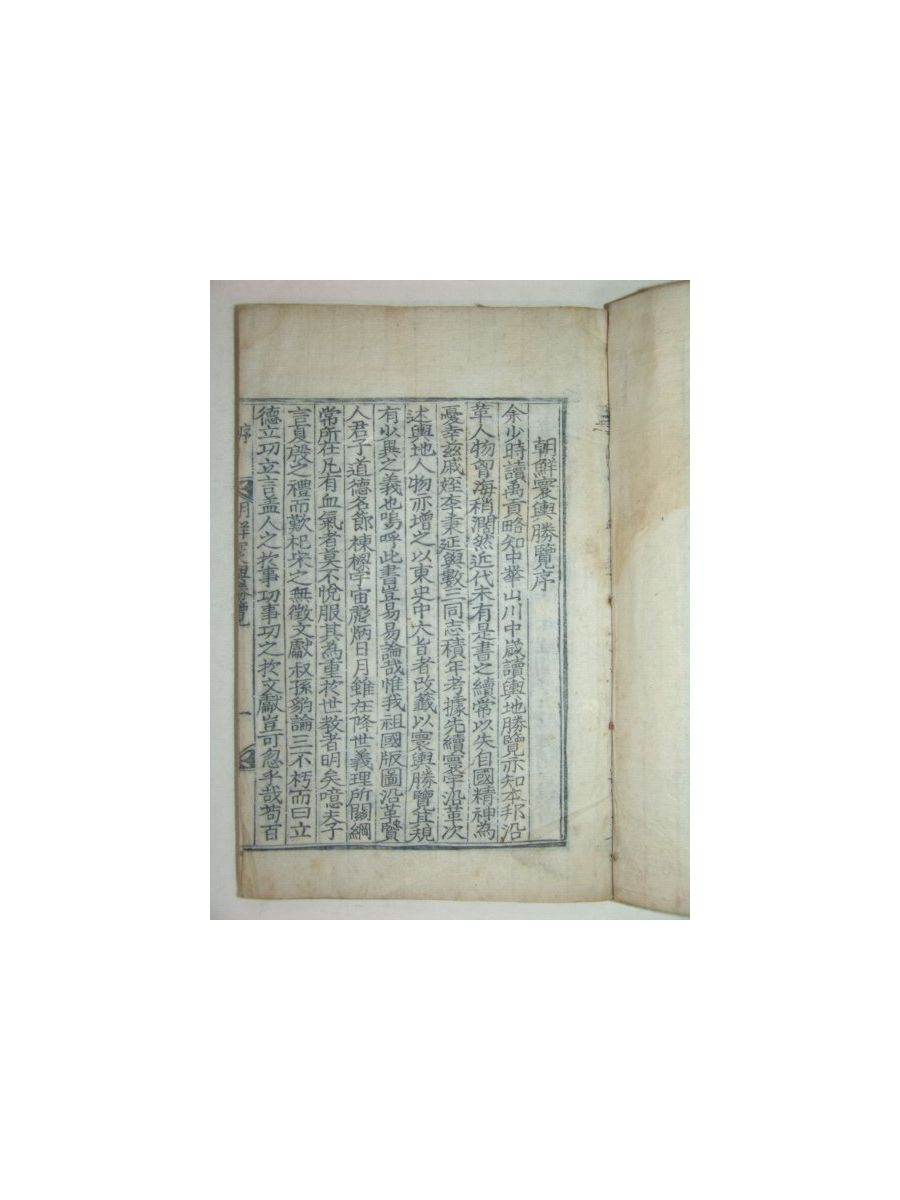 朝鮮寰輿勝覽序
余少時讀禹貢略知中華山川中歲讀輿地勝覽亦知本邦沿
革人物智海稍濶然近代未有是書之續常以失自國精神為
憂幸玆戚姪李秉延與數三同志積年考據先續寰宇沿革次
述輿地人物亦增之以東史中大旨者改籤以寰輿勝覽其規
有少異之義也嗚呼此書豈易易論哉惟我祖國版圖沿革賢
人君子道德名節棟樑宇宙彪炳日月雖在降世義理所關綱
常所在凡有血氣者莫不悅服其為重於世敎者明矣噫夫子
言夏殷之禮而歎杞宋之無徵文獻叔孫豹論三不朽而曰立
德立功立言盖人之於事功事功之於文獻豈可忽乎哉苟百
序 勝覽 一